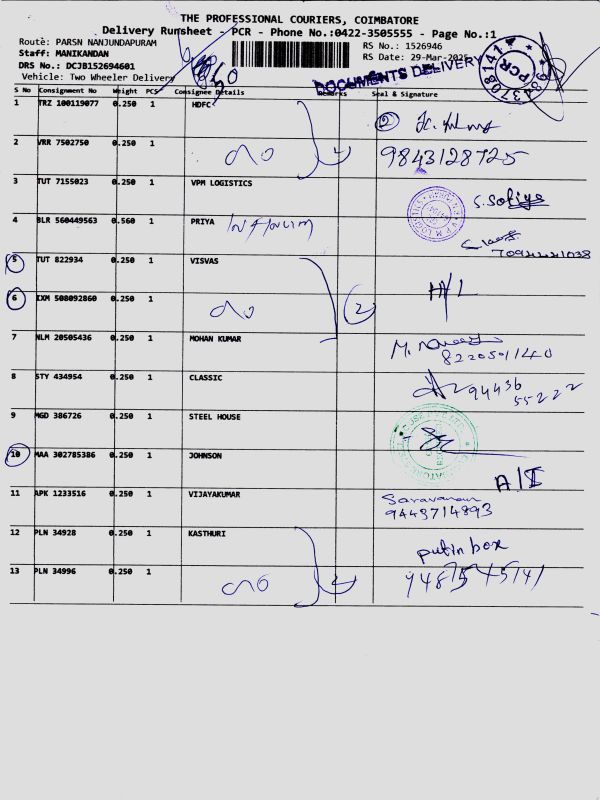 THE PROFESSIONAL COURIERS, COIMBATORE
Delivery Runsheet - PCR - Phone No.:0422-3505555 - Page No.:1
Route: PARSN NANJUNDAPURAM
RS No.: 1526946
Staff: MANIKANDAN
RS Date: 29-Mar-2025
DRS No.: DCJB152694601
Vehicle: Two Wheeler Delivery
DOCUMENTS DELIVERY
PCR
S No Consignment No Weight PCS Consignee Details Remarks Seal & Signature
1 TRZ 100119077 0.250 1 HDFC
2 VRR 7502750 0.250 1 9843128725
3 TUT 7155023 0.250 1 VPM LOGISTICS S. Sofiya
4 BLR 560449563 0.560 1 PRIYA
5 TUT 822934 0.250 1 VISVAS
6 IXM 508092860 0.250 1 2 H/L
7 NLM 20505436 0.250 1 MOHAN KUMAR
8220501140
8 STY 434954 0.250 1 CLASSIC 94436
55222
9 MGD 386726 0.250 1 STEEL HOUSE
10 MAA 302785386 0.250 1 JOHNSON
11 APK 1233516 0.250 1 VIJAYAKUMAR Saravanan
9443714893
12 PLN 34928 0.250 1 KASTHURI put in box
13 PLN 34996 0.250 1